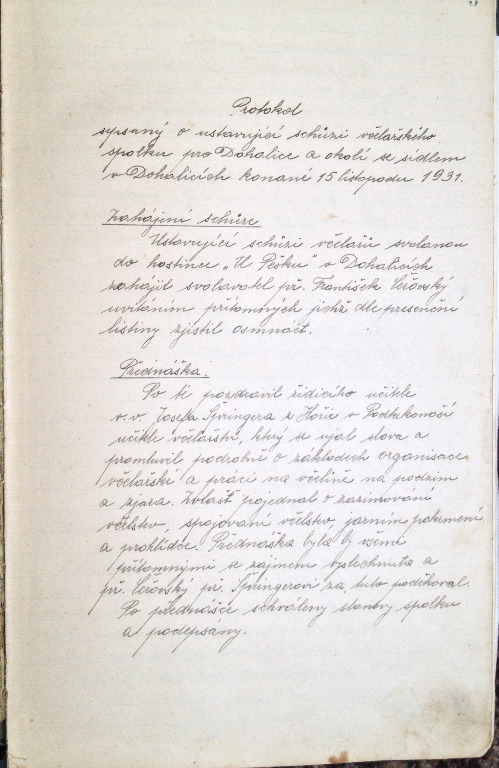 Protokol
sepsaný o ustavující schůzi včelařského
spolku pro Dohalice a okolí se sídlem
v Dohalicích konané 15 listopadu 1931.
Zahájení schůze
Ustavující schůzi včelařů svolanou
do hostince „U Pešků" v Dohalicích
zahájil svolavatel př. František Čeřovský
uvítáním přítomných jichž dle presenční
listiny zjistil osmnáct.
Přednáška.
Po té pozdravil řídícího učitele
v. v. Josefa Špringera z Hořic v Podkrkonoší
učitele včelařství, který se ujal slova a
promluvil podrobně o základech organisace
včelařské a práci na včelíně na podzim
a zjara. Zvlášť pojednal o zazimování
včelstev, spojování včelstev, jarním pokrmení
a prohlídce. Přednáška byla všemi
přítomnými se zájmem vyslechnuta a
př. Čeřovský př. Špringerovi za tuto poděkoval.
Po přednášce schváleny stanovy spolku
a podepsány.